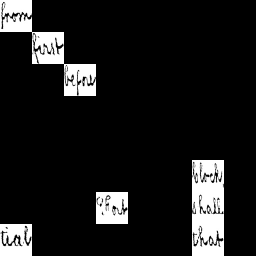 from
first
before
block,
shall
tial that